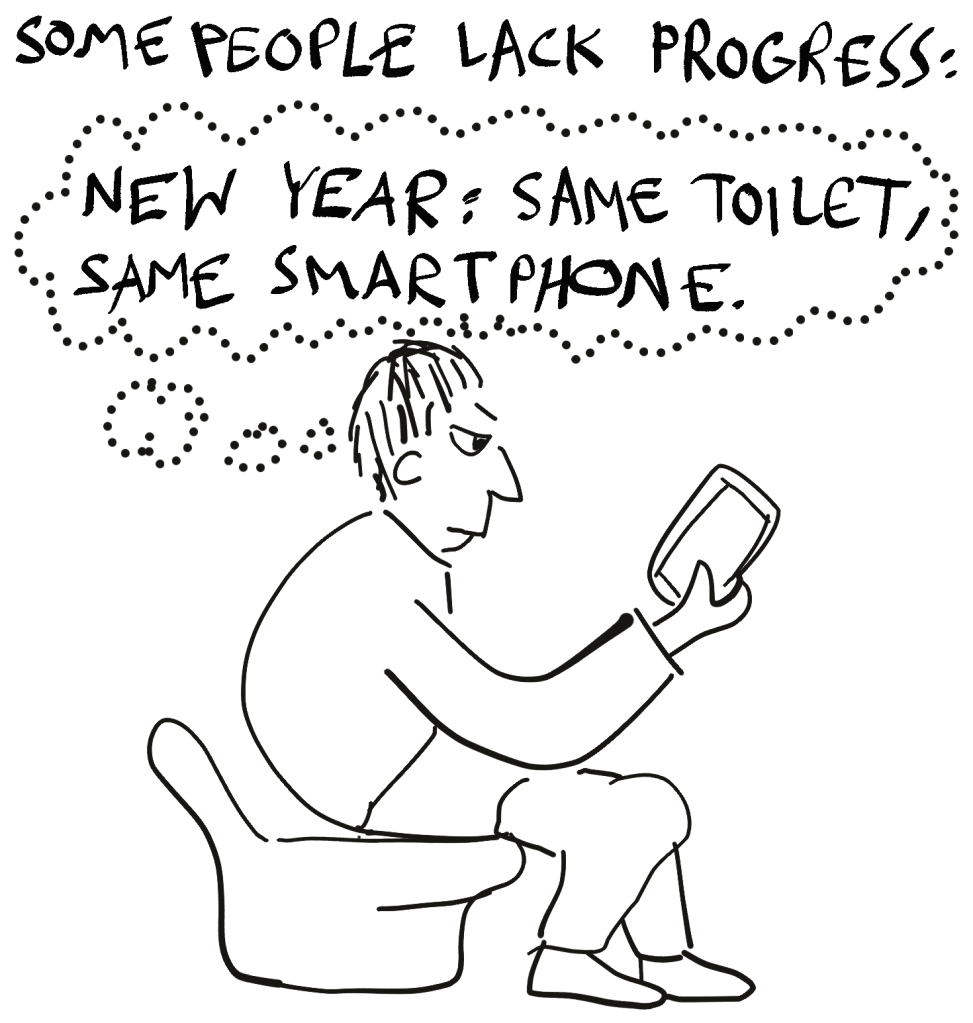 SOME PEOPLE LACK PROGRESS:
NEW YEAR: SAME TOILET,
SAME SMARTPHONE.